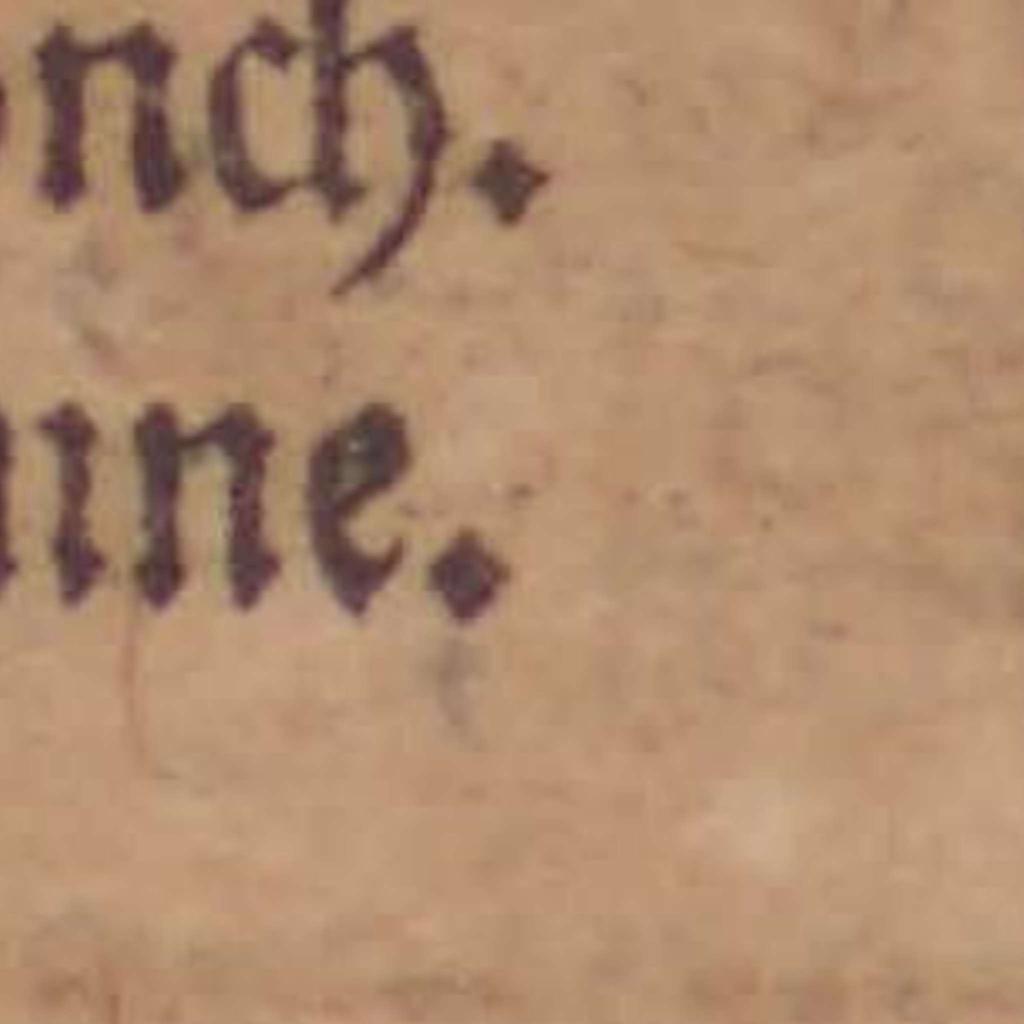 nch.
ine.